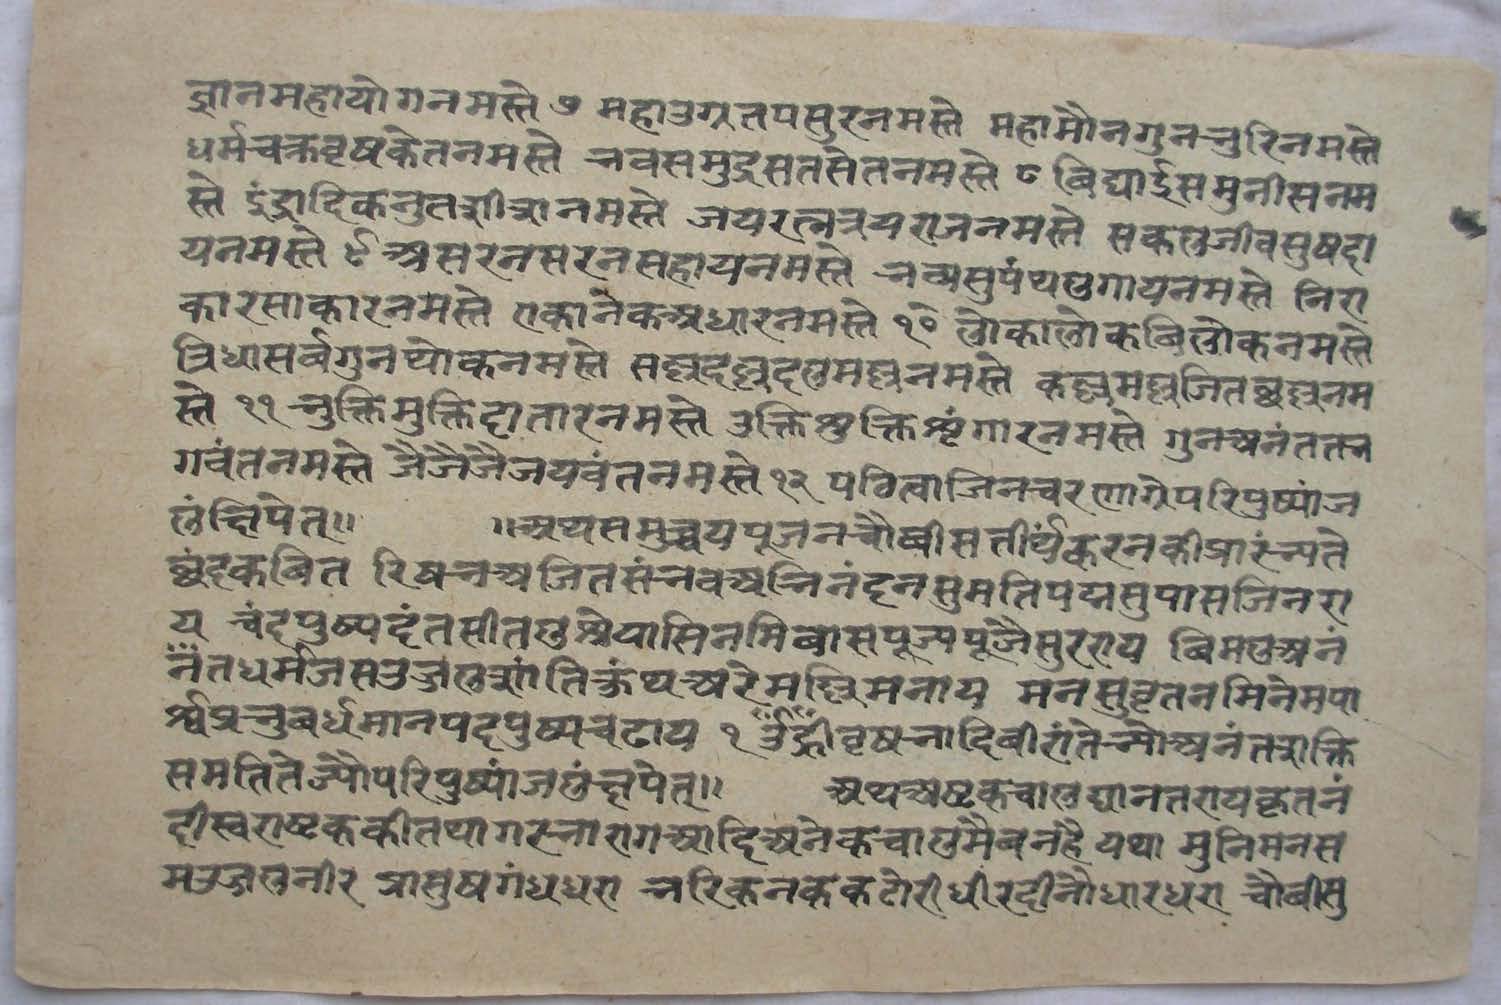 ज्ञानमहायोगनमस्ते ७ महाउग्रतपसुरनमस्ते महामौनगुनभुरिनमस्ते
धर्मचक्रवृषकेतनमस्ते भवसमुद्रसतसेतनमस्ते ८ बिद्याईसमुनीसनम
स्ते इंद्रादिकनुतशीशनमस्ते जयरत्नत्रयराजनमस्ते सकलजीवसुषदा
यनमस्ते ९ असरनसरनसहायनमस्ते भव्यसुपंथलगायनमस्ते निरा
कारसाकारनमस्ते एकानेकअधारनमस्ते १० लोकालोकबिलोकनमस्ते
त्रिधासर्वगुनथोकनमस्ते सल्लदल्लदलमल्लनमस्ते कल्लमल्लजितछल्लनम
स्ते ११ भुक्तिमुक्तिदातारनमस्ते उक्तिशुक्तिशृंगारनमस्ते गुनअनंतभ
गवंतनमस्ते जैजैजैजयवंतनमस्ते १२ पठित्वाजिनचरणाग्रेपरिपुष्पांज
लिंक्षिपेत्॥ ॥अथसमुच्चयपूजनचौबीसतीर्थंकरनकीप्रारंभ्यते
छंदकबित रिषभअजितसंभवअभिनंदनसुमतिपद्मसुपासजिनरा
य चंदपुष्पदंतसीतलश्रेयासिनमिबासपूज्यपूजैसुरराय बिमलअनं
नंतधर्मजसउज्जलशांतिकुंथअरेमल्लिमनाय मनसुवृतनमिनेमपा
र्श्वप्रभुबर्धमानपदपुष्पचढाय १ उंह्रीवृषभादिबीरांतेभ्योअनंतशक्ति
समतितेभ्योपरिपुष्पांजलिंक्षपेत्॥ अथअष्टकचालद्यानतरायकृतनं
दीस्वराष्टककीतथागरभारागआदिअनेकचालमैबनहै यथा मुनिमनस
मउज्जलनीर प्रासुषगंधधरा भरिकनककटोरीधीरदीनौधारधरा चौबीसु